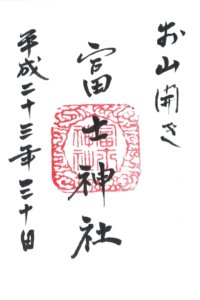 お山開き
富士神社
平成二十三年三十日